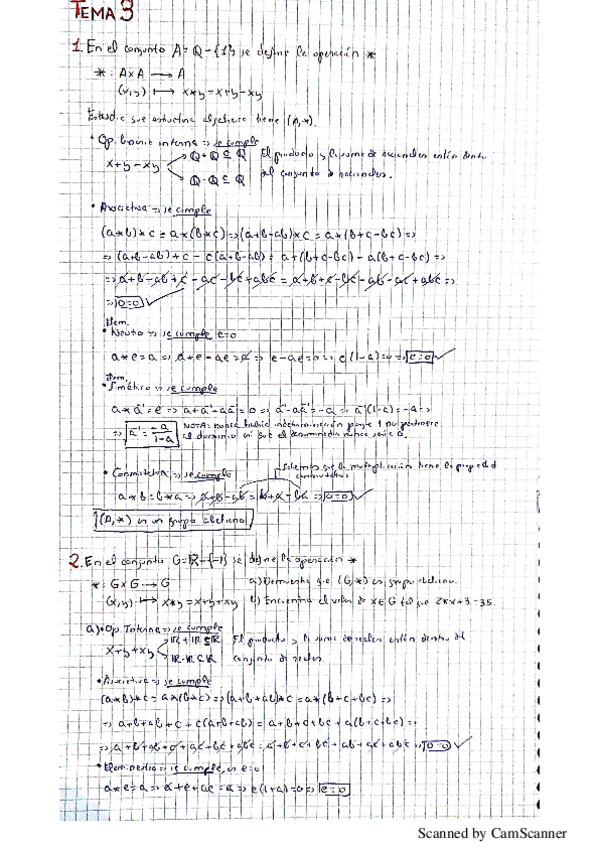 TEMA 3
1. En el conjunto A = Q - {1} se define la operación *
* : A x A → A
(x,y) ↦ x*y = x+y-xy
Estudie que estructura algebraica tiene (A,*).
• Op. binaria interna → se cumple
x+y-xy Q+Q ⊆ Q El producto y la suma de racionales están dentro
Q·Q ⊆ Q del conjunto de racionales.
• Asociativa → se cumple
(a*b)*c = a*(b*c) ⇒ (a+b-ab)*c = a*(b+c-bc) ⇒
⇒ (a+b-ab)+c - c(a+b-ab) = a+(b+c-bc) - a(b+c-bc) ⇒
⇒ a+b-ab+c-ac-bc+abc = a+b+c-bc-ab-ac+abc ⇒
⇒ 0=0 ✓
Elem.
• Neutro → se cumple e=0
a*e=a ⇒ a+e-ae=a ⇒ e-ae=0 ⇒ e(1-a)=0 ⇒ e=0 ✓
Elem.
• Simétrico → se cumple
a*a⁻¹=e ⇒ a+a⁻¹-aa⁻¹=0 ⇒ a⁻¹-aa⁻¹=-a ⇒ a⁻¹(1-a)=-a ⇒
⇒ a⁻¹ = -a/1-a NOTA: nunca habrá indeterminación porque 1 no pertenece
al dominio, así que el denominador nunca será 0.
• Conmutativa → se cumple Sabemos que la multiplicación tiene la propiedad
conmutativa
a*b=b*a ⇒ a+b-ab = b+a-ba ⇒ 0=0 ✓
(A,*) es un grupo abeliano
2. En el conjunto G=R-{-1} se define la operación *
* : G x G → G a) Demuestra que (G,*) es grupo abeliano.
(x,y) ↦ x*y = x+y+xy b) Encuentra el valor de x∈G tal que 2*x*3=35.
a) • Op. Interna → se cumple
x+y+xy R+R ⊆ R El producto y la suma de reales están dentro del
R·R ⊆ R conjunto de reales.
• Asociativa → se cumple
(a*b)*c = a*(b*c) ⇒ (a+b+ab)*c = a*(b+c+bc) ⇒
⇒ a+b+ab+c+c(a+b+ab) = a+b+c+bc+a(b+c+bc) ⇒
⇒ a+b+ab+c+ac+bc+abc = a+b+c+bc+ab+ac+abc ⇒ 0=0 ✓
• Elem. neutro → se cumple, es e=0
a*e=a ⇒ a+e+ae=a ⇒ e(1+a)=0 ⇒ e=0
Scanned by CamScanner